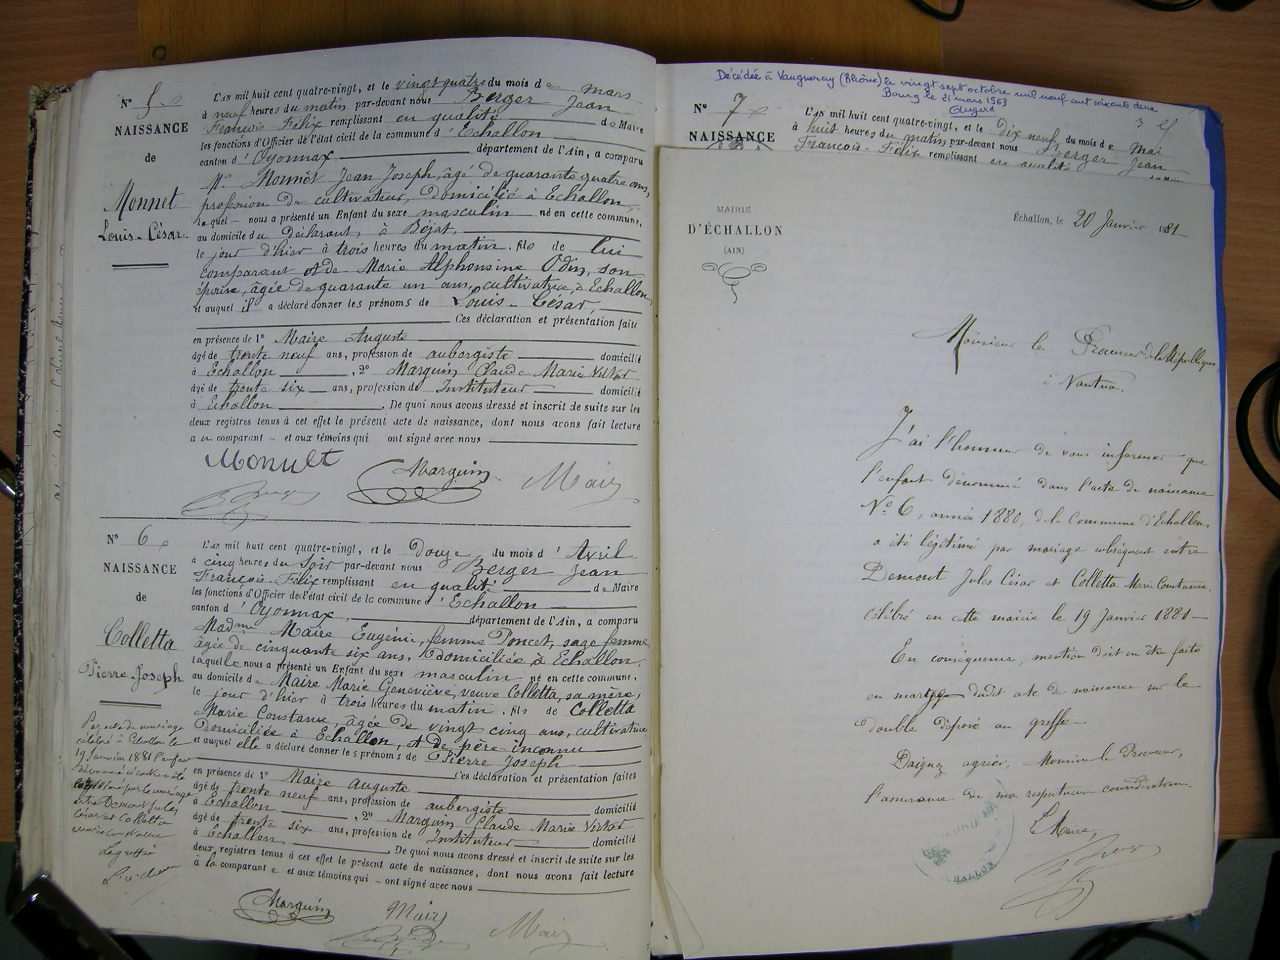 N° 5
NAISSANCE
de
Monnet
Louis-César
L'an mil huit cent quatre-vingt, et le vingt quatre du mois de mars
à neuf heures du matin par-devant nous Berger Jean
François Félix remplissant en qualité de Maire
les fonctions d'Officier de l'état civil de la commune d'Echallon
canton d'Oyonnax département de l'Ain, a comparu
Mr Monnet Jean Joseph, âgé de quarante quatre ans,
profession de cultivateur, domicilié à Echallon,
lequel nous a présenté un Enfant du sexe masculin né en cette commune,
au domicile du déclarant, à
le jour d'hier à trois heures du matin, fils de lui
comparant et de Marie Alphonsine Odin, son
épouse, âgée de quarante un ans, cultivatrice, à Echallon,
et auquel il a déclaré donner les prénoms de Louis-César,
Ces déclaration et présentation faites
en présence de 1° Maire Auguste
âgé de trente neuf ans, profession de aubergiste domicilié
à Echallon, 2° Marquin Claude Marie Victor
âgé de trente six ans, profession de Instituteur domicilié
à Echallon. De quoi nous avons dressé et inscrit de suite sur les
deux registres tenus à cet effet le présent acte de naissance, dont nous avons fait lecture
au comparant et aux témoins qui ont signé avec nous
Marquin Maire
N° 6
NAISSANCE
de
Colletta
Pierre-Joseph
L'an mil huit cent quatre-vingt, et le Douze du mois d'Avril
à cinq heures du soir par-devant nous Berger Jean
François-Félix remplissant en qualité de Maire
les fonctions d'Officier de l'état civil de la commune d'Echallon
canton d'Oyonnax département de l'Ain, a comparu
Madme Maire Eugénie, femme Poncet, sage femme,
âgée de cinquante six ans, domiciliée à Echallon,
laquelle nous a présenté un Enfant du sexe masculin né en cette commune,
au domicile de Maire Marie Geneviève, veuve Colletta, sa mère,
le jour d'hier à trois heures du matin, fils de Colletta
Marie Constance, âgée de vingt cinq ans, cultivatrice
domiciliée à Echallon, et de père inconnu
et auquel elle a déclaré donner les prénoms de Pierre Joseph
Ces déclaration et présentation faites
en présence de 1° Maire Auguste
âgé de trente neuf ans, profession de aubergiste domicilié
à Echallon, 2° Marquin Claude Marie Victor
âgé de trente six ans, profession de Instituteur domicilié
à Echallon. De quoi nous avons dressé et inscrit de suite sur les
deux registres tenus à cet effet le présent acte de naissance, dont nous avons fait lecture
à la comparante et aux témoins qui ont signé avec nous
Marquin Maire
Par acte de mariage
célébré à Echallon le
19 Janvier 1881 l'enfant
par le mariage
entre Demont Jules
César et Colletta
Marie Constance
Le greffier
Décédée à Vaugneray (Rhône) le vingt sept octobre mil neuf cent soixante deux
Bourg le 21 mars 1963
N° 7
NAISSANCE
L'an mil huit cent quatre-vingt, et le dix neuf du mois de Mai
à huit heures du matin par-devant nous Berger Jean
François-Félix remplissant en qualité
MAIRIE
D'ÉCHALLON
(AIN)
Échallon, le 20 Janvier 1881
Monsieur le Procureur de la République
à Nantua.
J'ai l'honneur de vous informer que
l'enfant dénommé dans l'acte de naissance
N° 6, année 1880, de la Commune d'Echallon,
a été légitimé par mariage subséquent entre
Demont Jules César et Colletta Marie Constance,
célébré en cette mairie le 19 Janvier 1881
En conséquence, mention doit en être faite
en marge dudit acte de naissance sur le
double déposé au greffe
Daignez agréer, Monsieur le Procureur,
l'assurance de ma respectueuse considération
Le Maire,